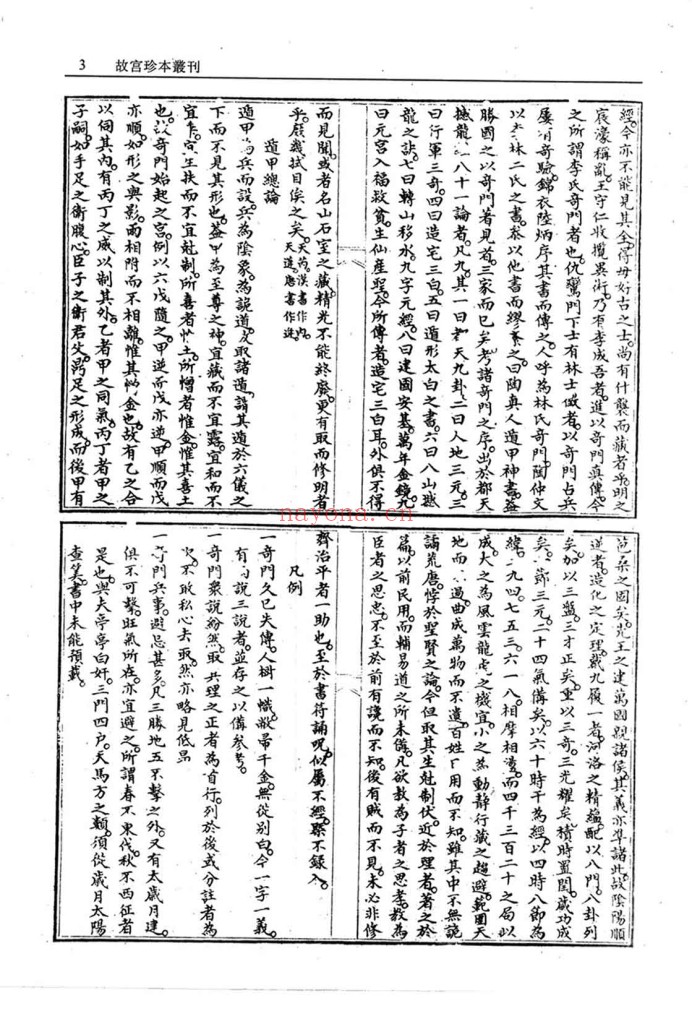 3 故宫珍本叢刊
經今亦不能見其全得毋好古之士尚有什襲而藏者乎明之
宸濠稱亂王守仁收攬異術乃有李成吾者進以奇門真傳今
之所謂李氏奇門者也仇鸞門下士有林士徵者以奇門占兵
屢有奇驗錦衣陸炳序其書而傳之人呼為林氏奇門陶仲文
以 林二氏之書叅以他書而繆素之曰陶真人遁甲神書盖
勝國之以奇門著見者三家而已矣考諸奇門之序出於都天
撼龍 八十一論者凡九其一曰 天九卦二曰人地三元三
曰行軍三奇四曰造宅三白五曰遁形太白之書六曰八山撼
龍之訣七曰轉山移水九字元經八曰建國安基萬年金鏡九
曰元宮入福救貧生仙産聖今所傳者造宅三白耳外俱不得
而見聞或者名山石室之藏精光不能終廢更有取而修明者
乎願拭目俟之矣天芮漢書作內天逆唐書作
遁甲總論
遁甲為兵而設兵為陰象為詭道故取諸遁謂其遁於六儀之
下而不見其形也蓋甲為至尊之神宜藏而不宜露宜和而不
宜乍宜生扶而不宜尅制所喜者惟土所憎者惟金惟其喜土
也故奇門始起之宮例以六戊隨之甲逆而戊亦逆甲順而戊
亦順如形之與影兩相附而不相離惟其憎金也故有乙之合
以伺其內有丙丁之威以制其外乙者甲之同氣丙丁者甲之
子嗣如手足之衛腹心臣子之衛君父羽足之形成而後甲有
苞桑之固矣先王之建萬國親諸侯其義亦準諸此故陰陽順
逆者造化之定理戴九履一者河洛之精蘊配以八門八卦列
矣加以三盤三才正矣重以三奇三光耀矣積時置閏歲功成
矣 節三元二十四氣備矣以六十時干為經以四時八節為
緯 九四七五三六一八相摩相盪而四千三百二十之局以
成大之為風雲龍虎之機宜小之為動靜行藏之趨避範圍天
地而 過曲成萬物而不遺百姓日用而不知雖其中不無詭
譎荒唐悖於聖賢之論今但取其生尅制伏近於理者著之於
篇以前民用而輔易道之所未備凡欲教為子者之思孝教為
臣者之思忠不至於前有讒而不知後有賊而不見未必非修
齊治平者一助也至於書符誦呪似屬不經槩不錄入
凡例
一奇門久已失傳人樹一幟敝帚千金無從別白今一字一義
有 説三説者並存之以備參考
一奇門衆説紛然取其理之正者為首行列於後或分註者為
次不敢私心去取然亦略見低昂
一奇門兵事避忌甚多凡三勝地五不擊之外又有太歲月建
俱不可擊旺氣所在亦宜避之所謂春不東伐秋不西征者
是也與夫亭亭白奸三門四户天馬方之類須從歲月太陽
查筭書中未能預載
nayona.cn